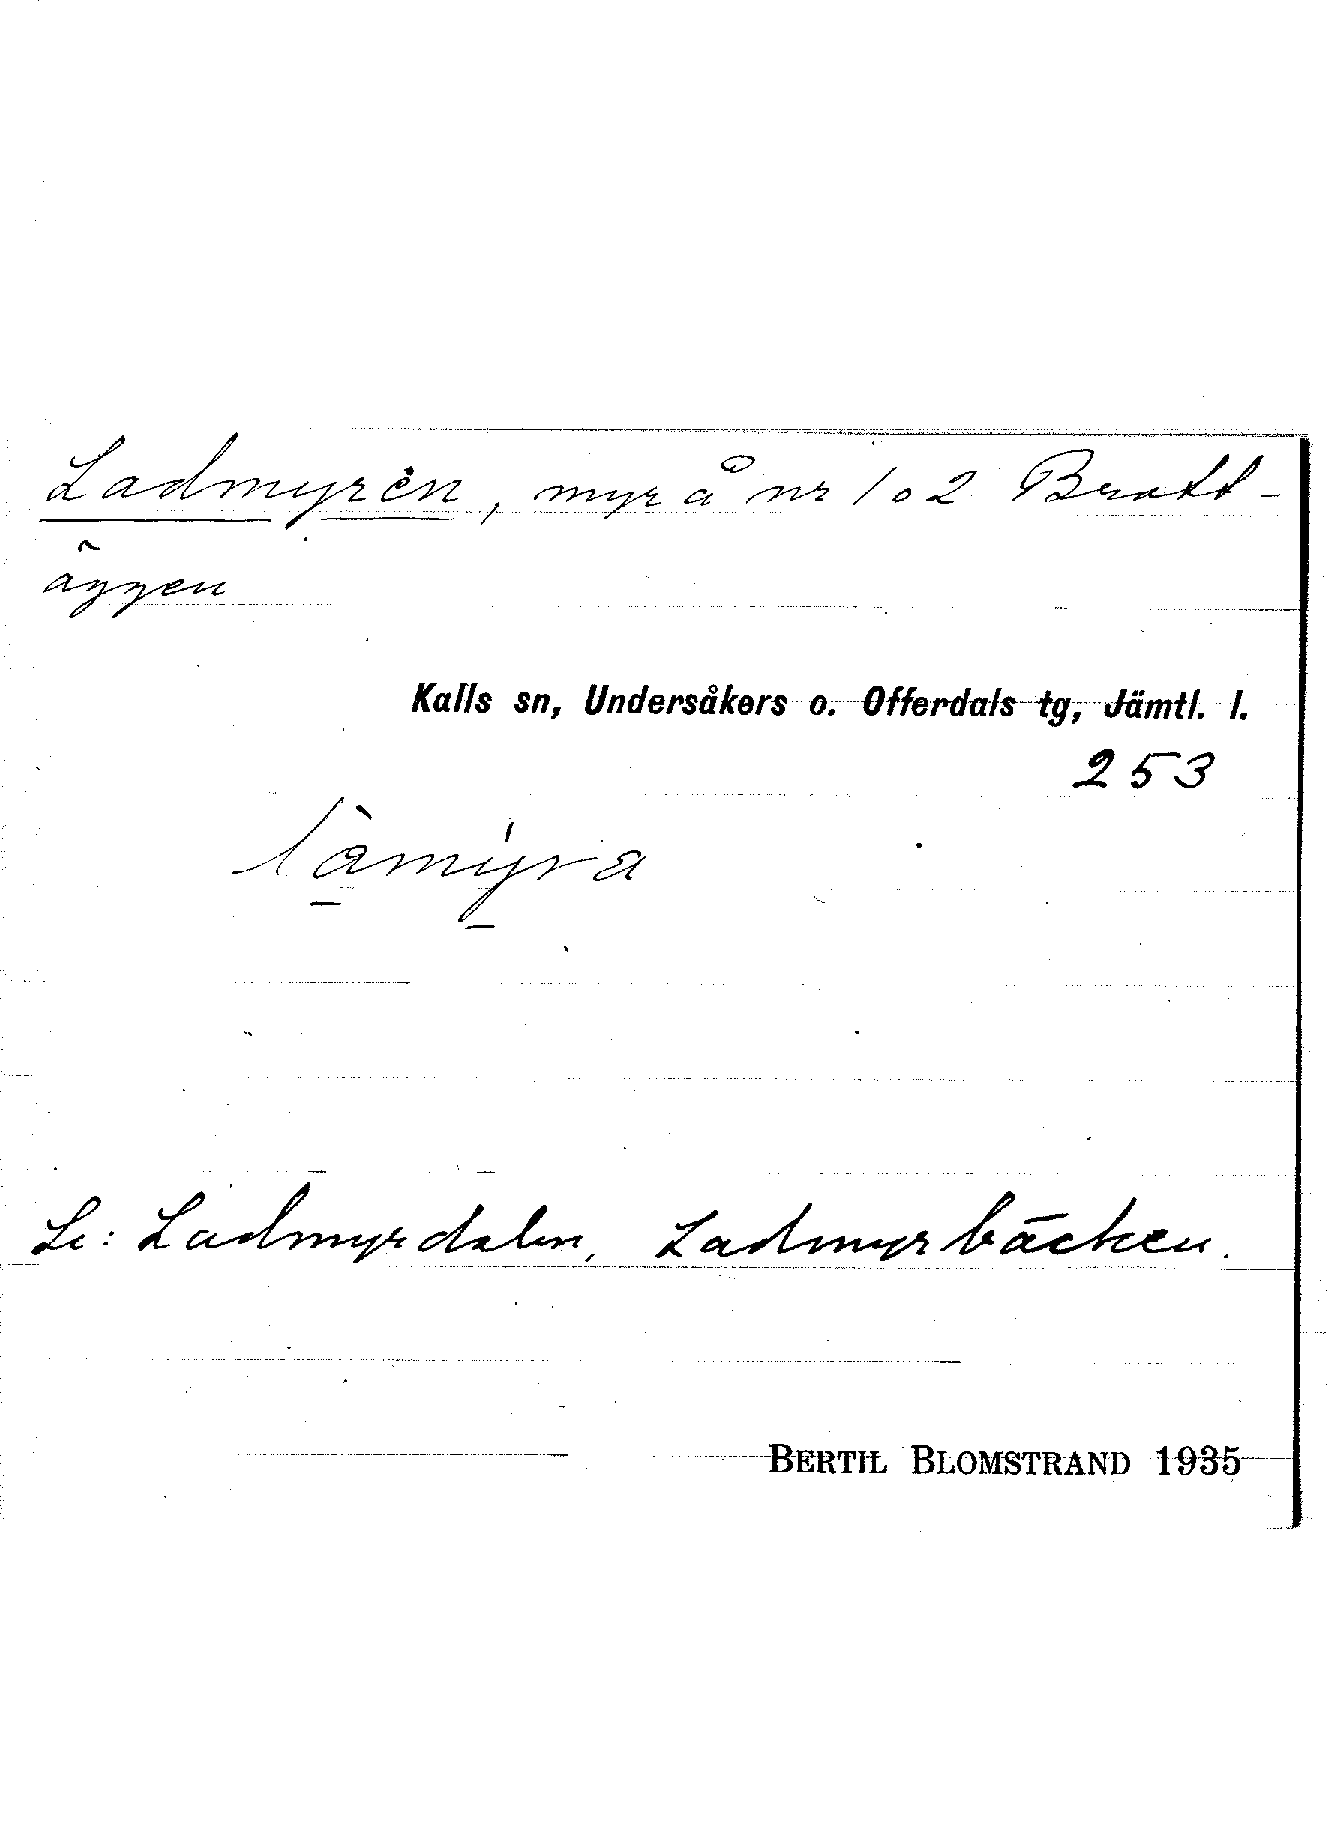 Ladmyren, myr å nr 1 o 2 Bratt-
äggen
Kalls sn, Undersåkers o. Offerdals tg, Jämtl. l.
253
Se: Ladmyrdalen, Ladmyrbäcken.
BERTIL BLOMSTRAND 1935